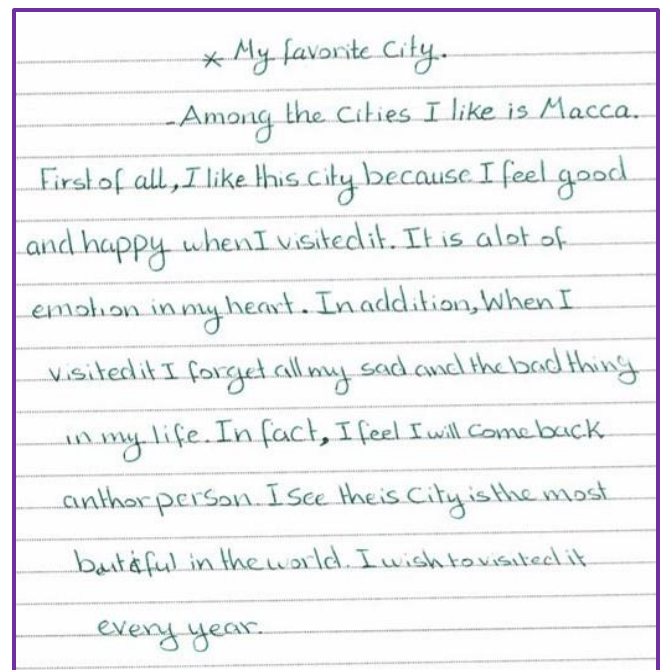 * My favorite City.
-Among the Cities I like is Macca.
First of all, I like this city because I feel good
and happy when I visited it. It is alot of
emotion in my heart. In addition, When I
visited it I forget all my sad and the bad thing
in my life. In fact, I feel I will come back
anthor person. I see theis City is the most
butiful in the world. I wish to visited it
every year.